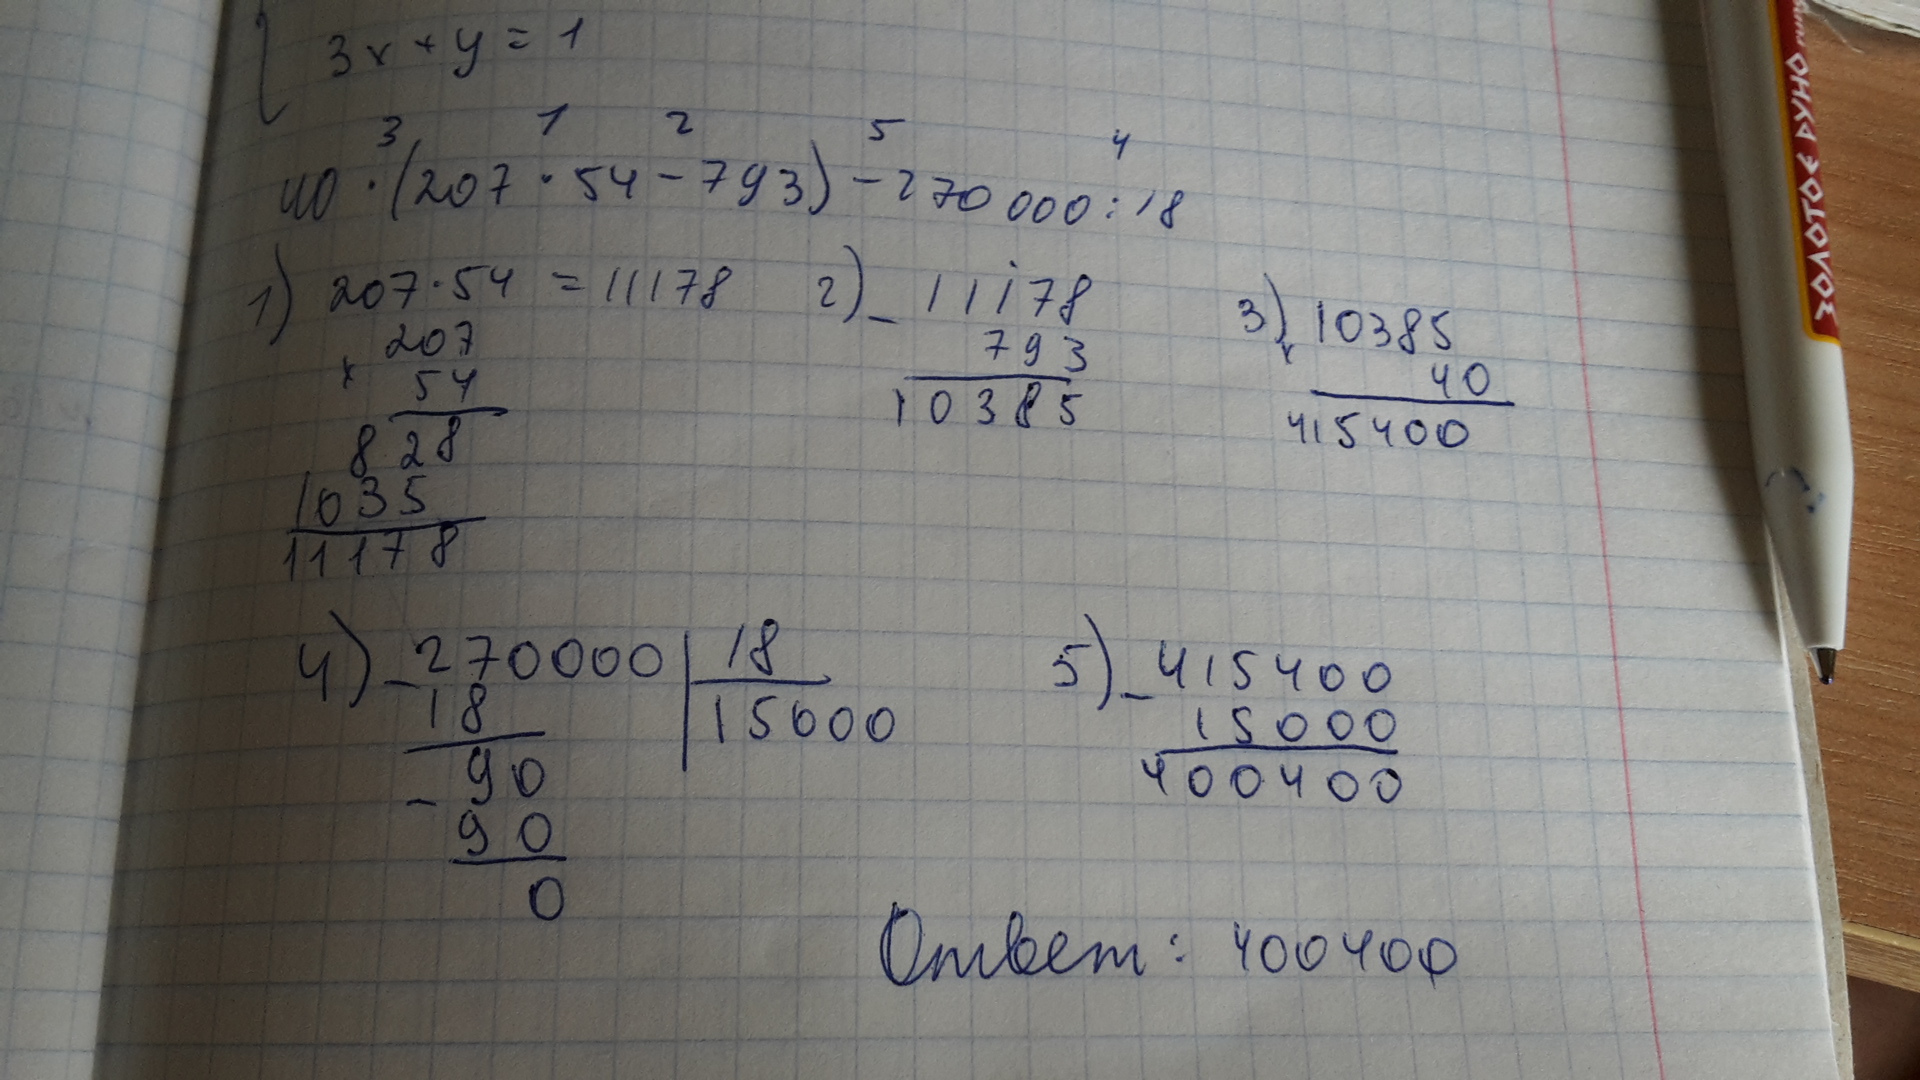 3x + y = 1
3 1 2 5 4
40 · (207 · 54 - 793) - 270 000 : 18
1) 207 · 54 = 11178
207
x 54
828
1035
11178
2) - 11178
793
10385
3) x 10385
40
415400
4) - 270000 | 18
18 15000
- 90
90
0
5) - 415400
15000
400400
Ответ: 400400
ЗОЛОТОЕ РУНО